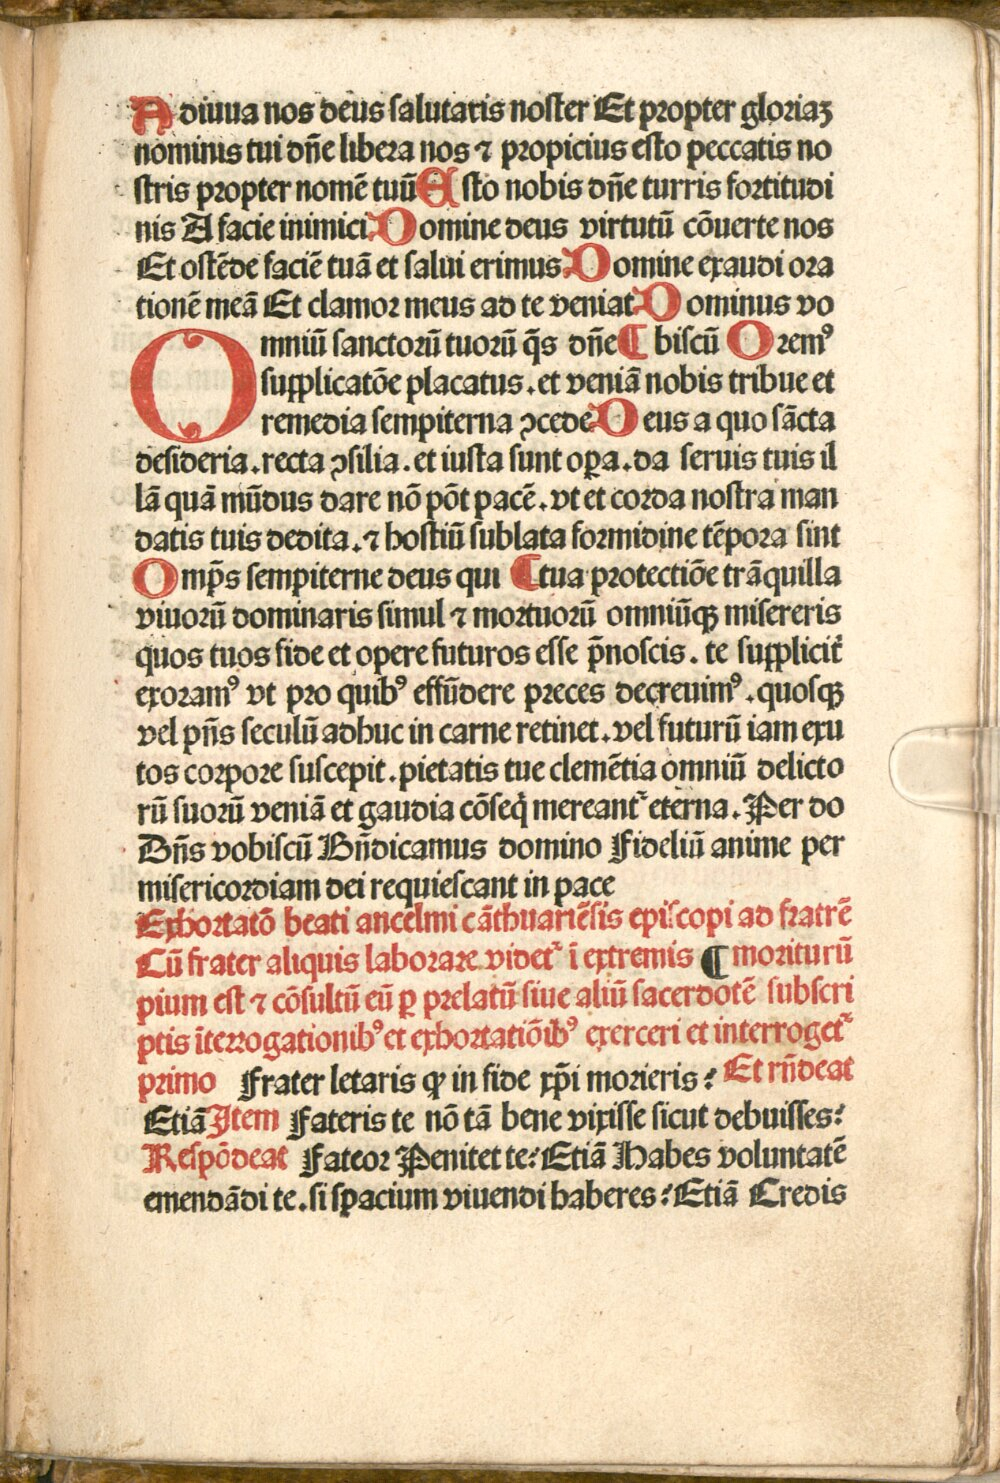 Adiuua nos deus salutaris noster Et propter gloriaꝫ
nominis tui dn̄e libera nos ⁊ propicius esto peccatis no
stris propter nomē tuū Esto nobis dn̄e turris fortitudi
nis A facie inimici Domine deus virtutū cōuerte nos
Et ostēde faciē tuā et salui erimus Domine exaudi ora
tionē meā Et clamor meus ad te veniat Dominus vo
Omniū sanctorū tuorū q̄s dn̄e ¶ biscū Oremꝰ
supplicatōe placatus. et veniā nobis tribue et
remedia sempiterna ↄcede Deus a quo sācta
desideria. recta ↄsilia. et iusta sunt oꝑa. da seruis tuis il
lā quā mūdus dare nō pōt pacē. vt et corda nostra man
datis tuis dedita. ⁊ hostiū sublata formidine tēpora sint
Omp̄s sempiterne deus qui ¶ tua protectiōe trāquilla
viuorū dominaris simul ⁊ mortuorū omniūqꝫ misereris
quos tuos fide et opere futuros esse p̄noscis. te supplicit̄
exoramꝰ vt pro quibꝰ effūdere preces decreuimꝰ. quosqꝫ
vel pn̄s seculū adhuc in carne retinet. vel futurū iam exu
tos corpore suscepit. pietatis tue clemētia omniū delicto
rū suorū veniā et gaudia cōseq̄ mereant᷑ eterna. Per do
Dn̄s vobiscū Bn̄dicamus domino Fideliū anime per
misericordiam dei requiescant in pace
Exhortatō beati ancelmi cāthuariēsis episcopi ad fratrē
Cū frater aliquis laborare videt᷑ ī extremis ¶ moriturū
pium est ⁊ cōsultū eū ꝑ prelatū siue aliū sacerdotē subscri
ptis īterrogationibꝰ et exhortatiōibꝰ exerceri et interroget᷑
primo Frater letaris ꝙ in fide xp̄i morieris? Et rn̄deat
Etiā Item Fateris te nō tā bene vixisse sicut debuisses?
Respōdeat Fateor Penitet te? Etiā Habes voluntatē
emendādi te. si spacium viuendi haberes? Etiā Credis